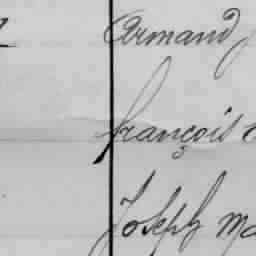 Armand
françois
Joseph Ma